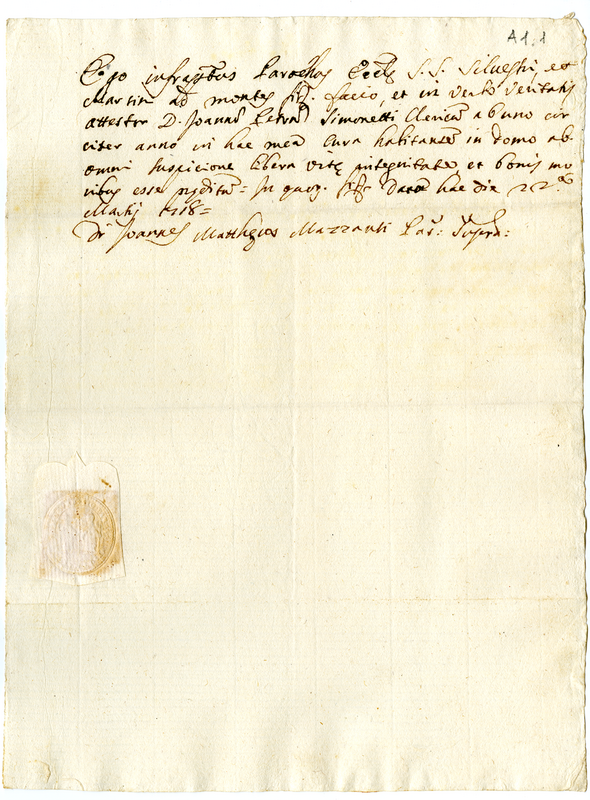 A 1.1
Ego infrascptus Parochus Eccle S. S. Siluestri, et
Martini ad montes facio, et in verbo veritatis
attestor D. Joannem Petrum Simonetti Clericum ab uno cir
citer anno in hac mea Cura habitantem in domo ab
omni suspicione libera vitę integritate et bonis mo
ribus esse pręditum = In quor. Dat hac die 22
Martij 1718 =
Dr Joannes Mattheus Mazzanti Par: